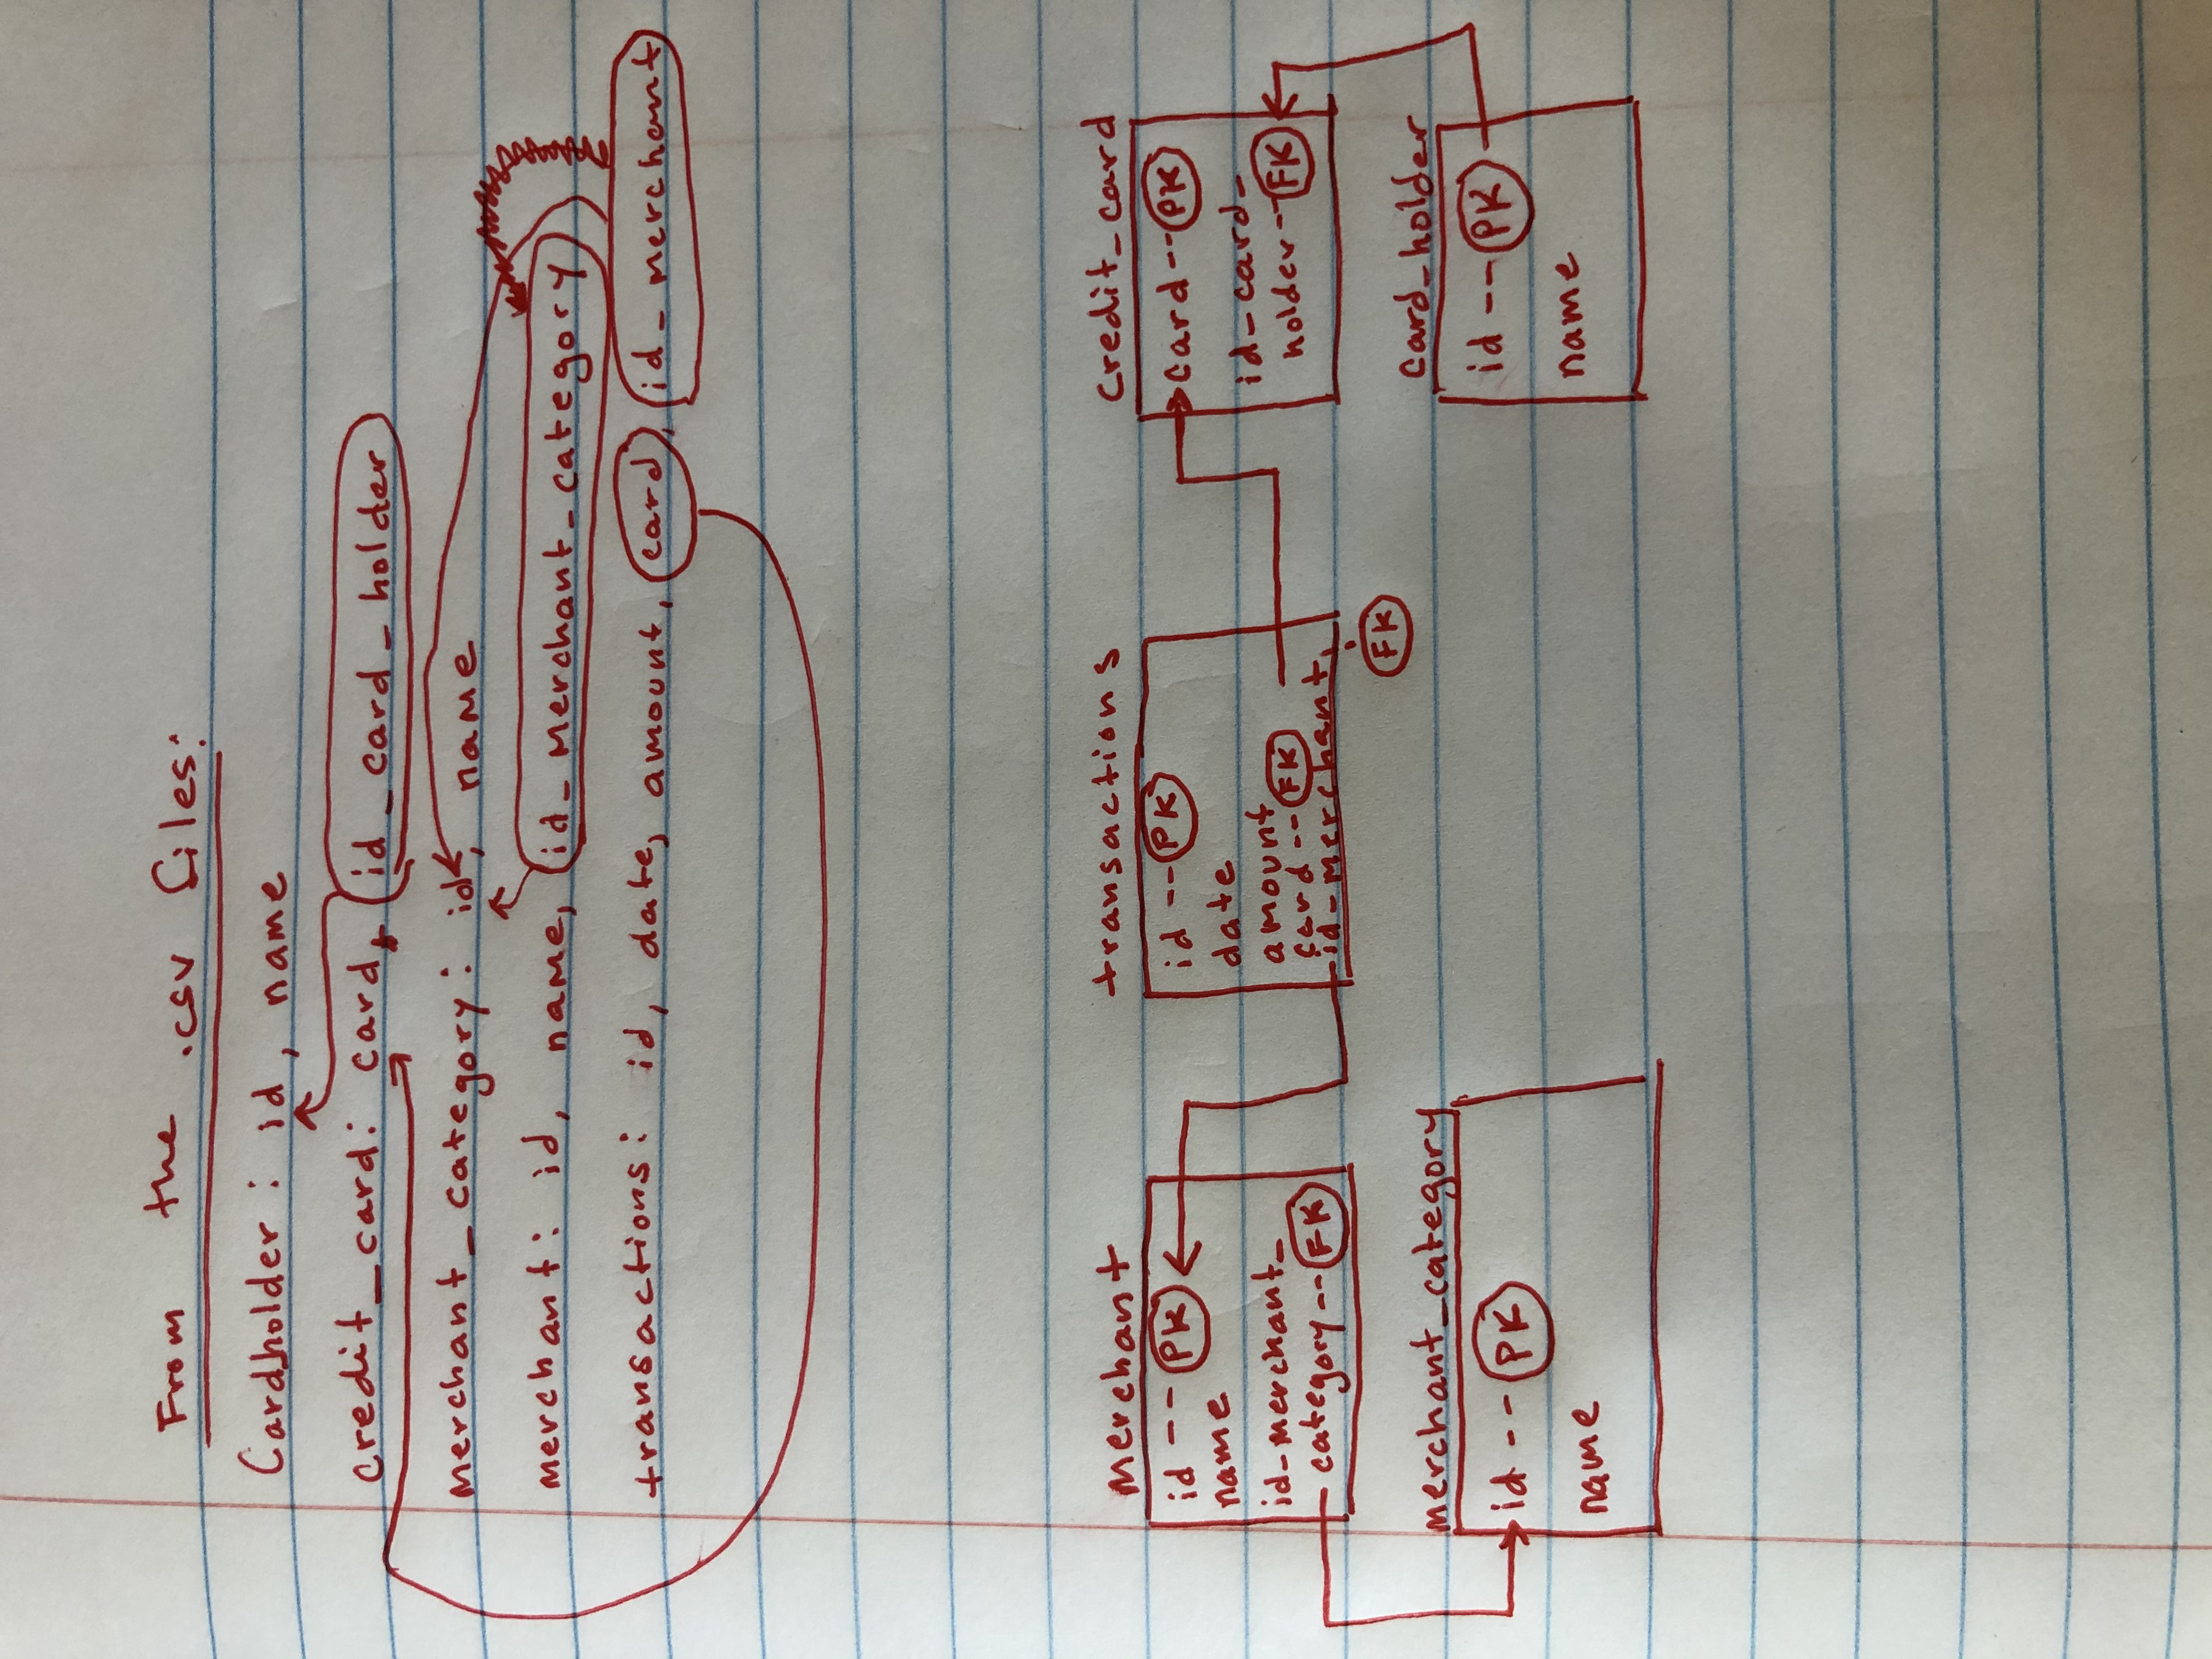 From the .csv files:
Cardholder: id, name
credit_card: card, id_card_holder
merchant_category: id, name
merchant: id, name, id_merchant_category
transactions: id, date, amount, card, id_merchant
merchant
id -- PK
name
id_merchant_
category -- FK
transactions
id -- PK
date
amount
card -- FK
id_merchant,
FK
credit_card
card -- PK
id_card_
holder -- FK
merchant_category
id -- PK
name
card_holder
id -- PK
name